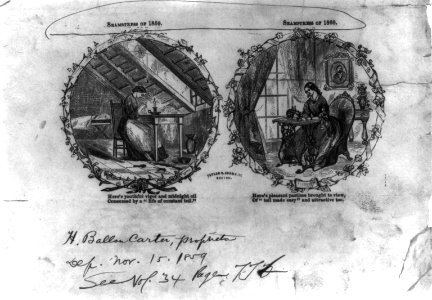 SEAMSTRESS OF 1850.
SEAMSTRESS OF 1860.
BOSTON.
Here's youthful vigor and midnight oil
Consumed by a "life of constant toil."
Here's pleasant pastime brought to view,
Of "toil made easy" and attractive too.
H. Carter, proprietor
Dep. Nov. 15. 1859
See Vol. 34 Page